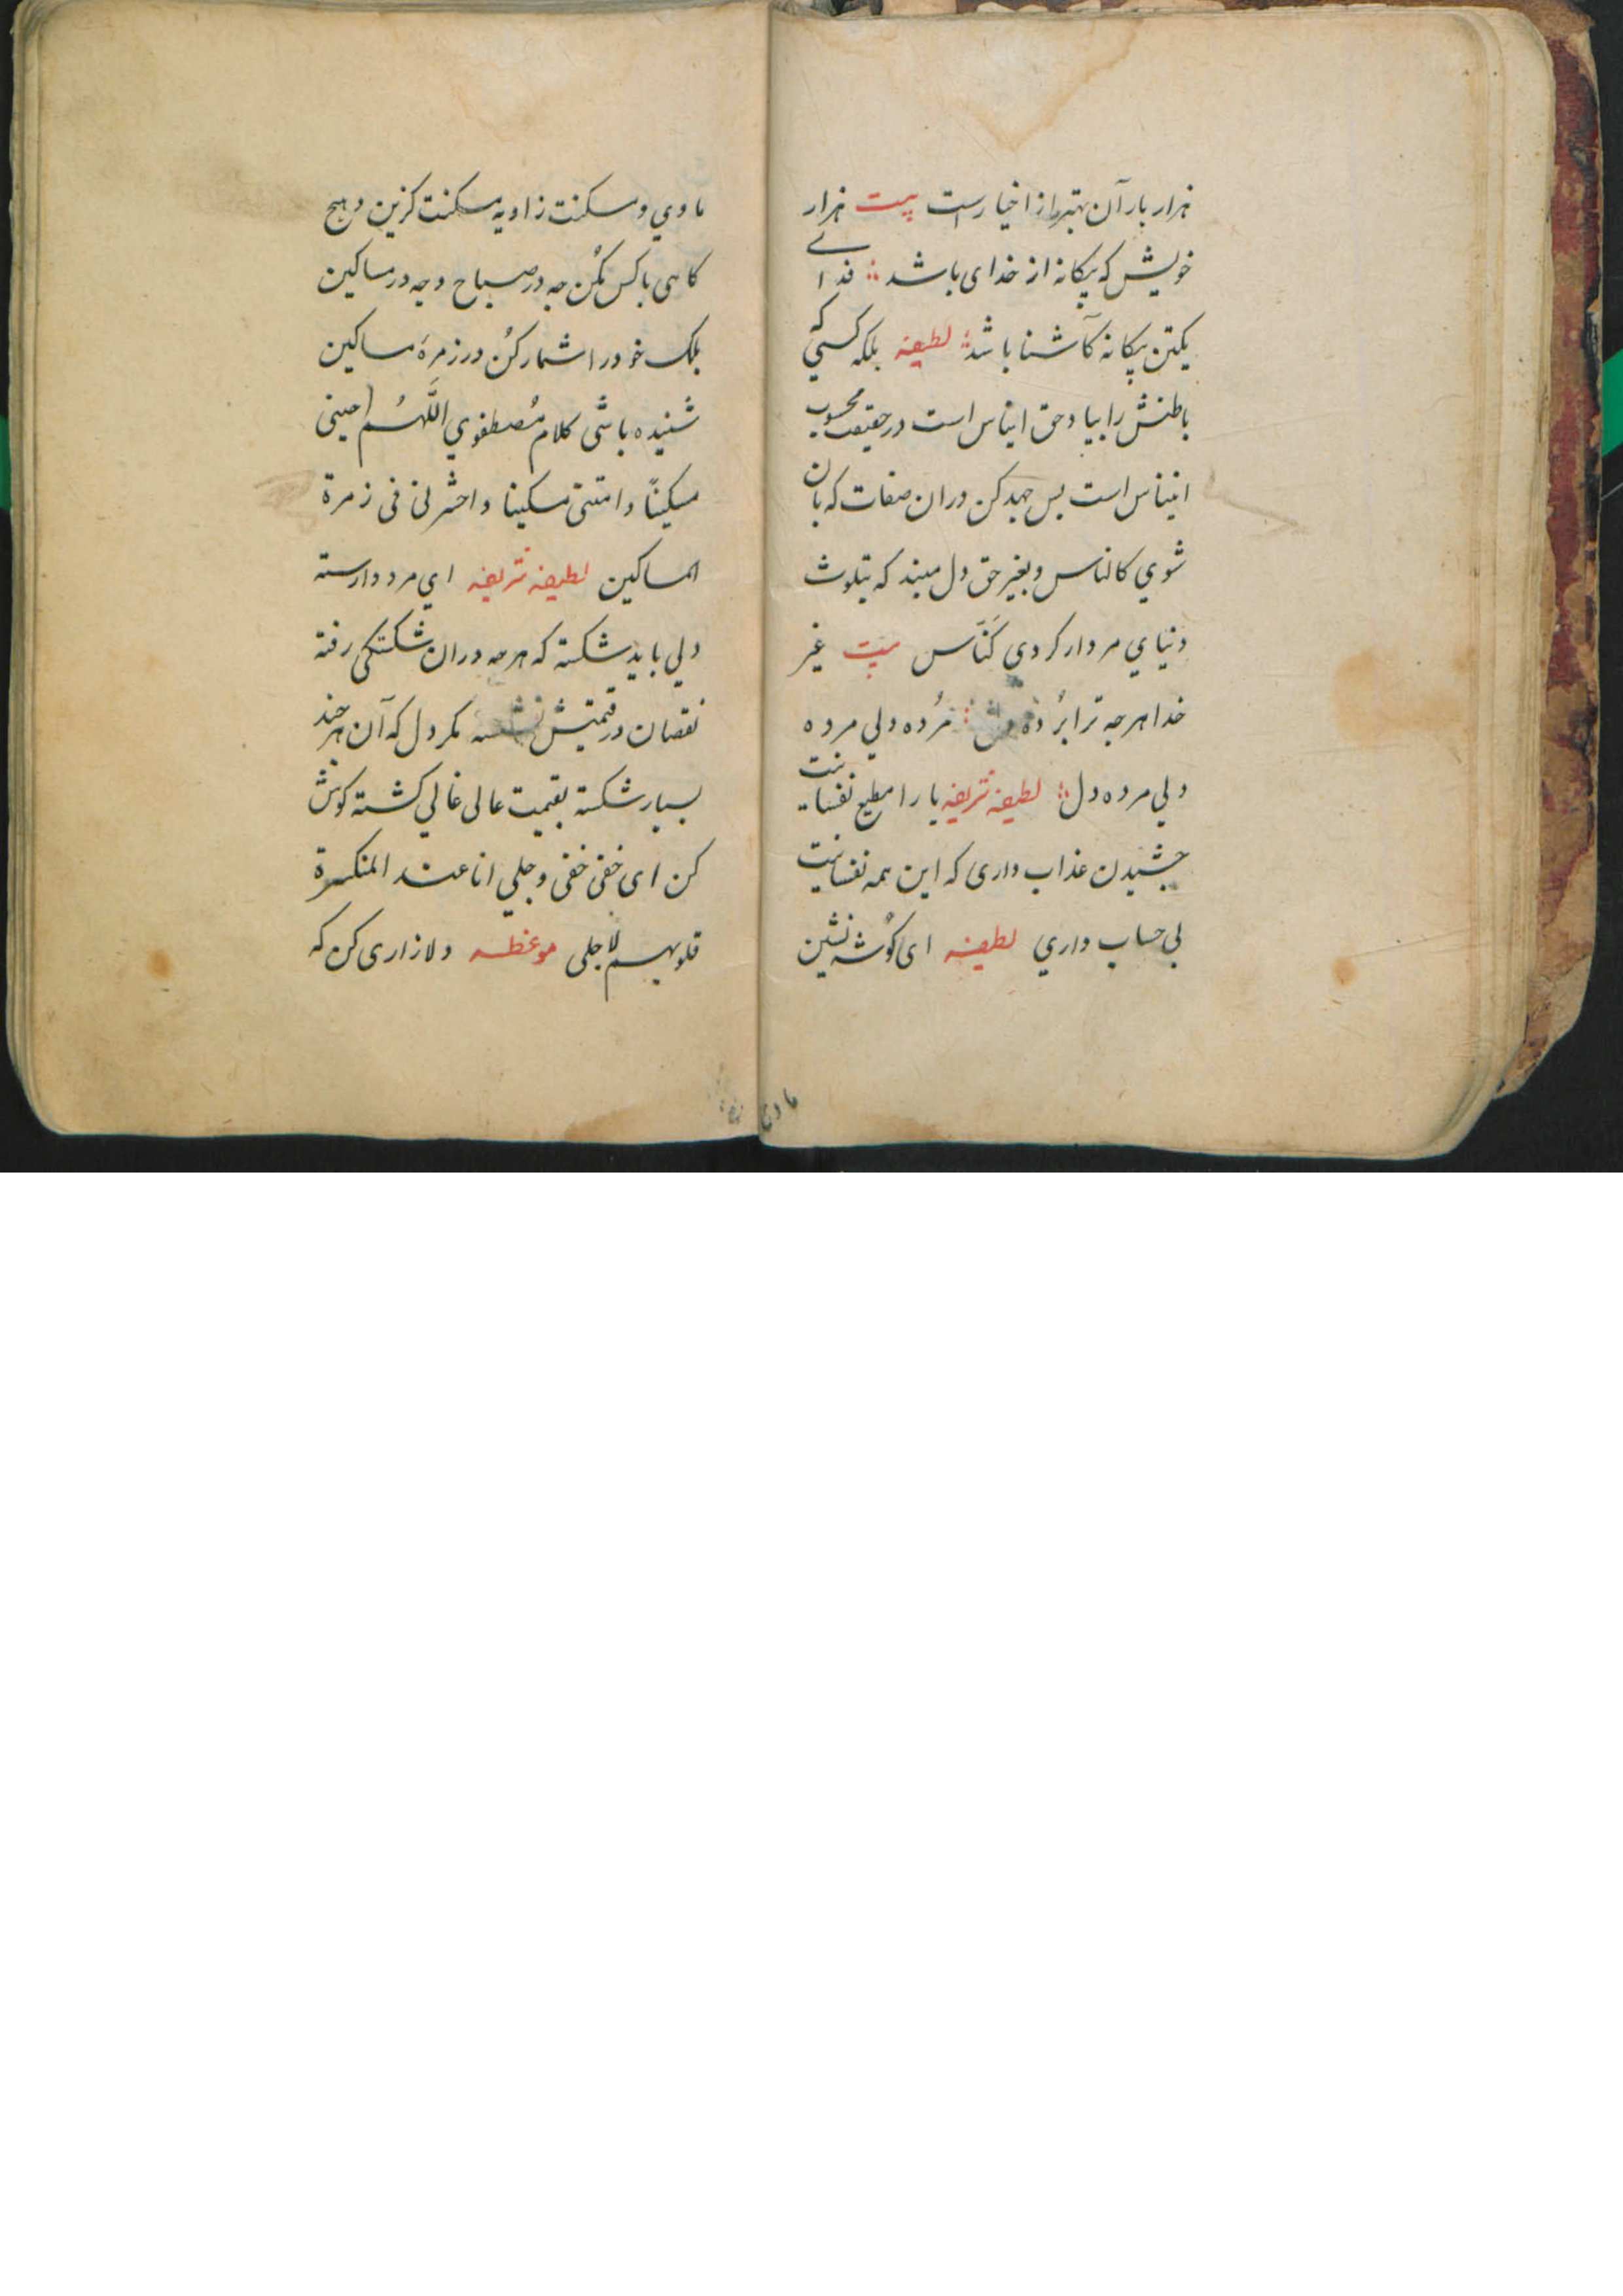 هزار بار آن بهتر از اخیارست بیت هزار
خویش که بیکانه از خدای باشد فدای
یکتن بیکانه کآشنا باشد لطیفه بلکه کسی که
باطنش را بیاد حق ایناس است در حقیقت محبوب
ایناس است بس جهد کن دران صفات که بان
شوي کالناس و بغیر حق دل مبند که بتلوث
دنیاي مردار کردی کَنّاس بیت غیر
خدا هرجه ترا بُرده دل مُرده ولی مرده
ولی مرده دل لطیفه شریفه یارا مطیع نفسانیت
جشیدن عذاب داری که این همه نفسانیت
بی حساب داري لطیفه ای کوُشه نشین
ماوي
ماوي و مسکنت زاویه مسکنت کزین و هیج
کاهی با کس مکُن جه در صباح و جه در مساکین
بلک خود را شمار کُن در زمرهٔ مساکین
شنیده باشی کلام مُصطفوي اللَّهُم احینی
مسکینًا و امتنی مسکینا و احشرنی فی زمرة
المساکین لطیفه شریفه اي مرد وارسته
دلي باید شکسته که هرجه دران شکستکی رفته
نقصان در قیمتش نشسته مکر دل که آن هرجند
بسیار شکسته بقیمت عالی غالي کشته کوش
کن ای خفی خفی و جلي انا عند المنکسرة
قلوبهم لاجلی موعظه دلازاری کن که